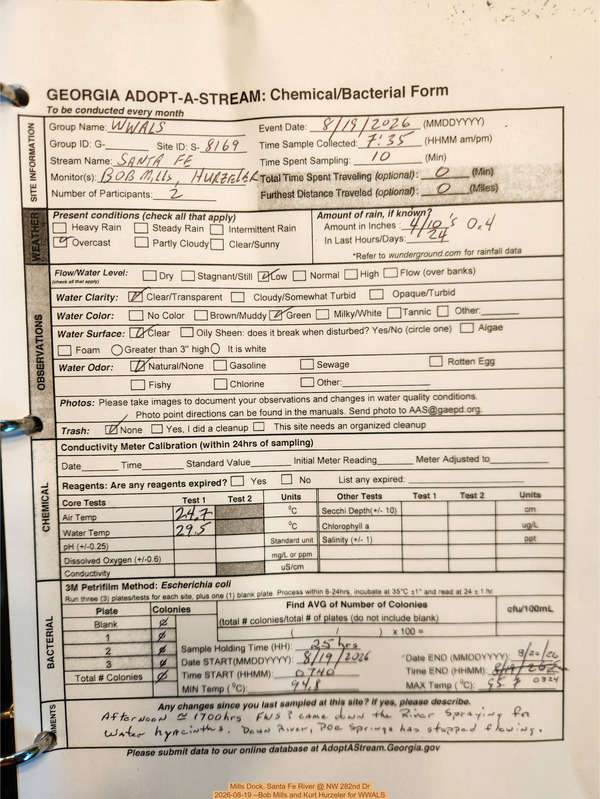 GEORGIA ADOPT-A-STREAM: Chemical/Bacterial Form
To be conducted every month
SITE INFORMATION
Group Name: WWALS
Event Date: 8/19/2026 (MMDDYYYY)
Group ID: G-______ Site ID: S- 8169
Time Sample Collected: 7:35 (HHMM am/pm)
Stream Name: SANTA FE
Time Spent Sampling: 10 (Min)
Monitor(s): BOB Mills, HURZELER
Total Time Spent Traveling (optional): 0 (Min)
Number of Participants: 2
Furthest Distance Traveled (optional): 0 (Miles)
WEATHER
Present conditions (check all that apply)
Heavy Rain Steady Rain Intermittent Rain
Overcast Partly Cloudy Clear/Sunny
Amount of rain, if known?
Amount in Inches: 4/10's 0.4
In Last Hours/Days: 24
*Refer to wunderground.com for rainfall data
OBSERVATIONS
Flow/Water Level: Dry Stagnant/Still Low Normal High Flow (over banks)
(check all that apply)
Water Clarity: Clear/Transparent Cloudy/Somewhat Turbid Opaque/Turbid
Water Color: No Color Brown/Muddy Green Milky/White Tannic Other:______
Water Surface: Clear Oily Sheen: does it break when disturbed? Yes/No (circle one) Algae
Foam Greater than 3" high It is white
Water Odor: Natural/None Gasoline Sewage Rotten Egg
Fishy Chlorine Other:______
Photos: Please take images to document your observations and changes in water quality conditions.
Photo point directions can be found in the manuals. Send photo to AAS@gaepd.org.
Trash: None Yes, I did a cleanup This site needs an organized cleanup
CHEMICAL
Conductivity Meter Calibration (within 24hrs of sampling)
Date______ Time______ Standard Value______ Initial Meter Reading______ Meter Adjusted to______
Reagents: Are any reagents expired? Yes No List any expired: ______
Core Tests Test 1 Test 2 Units Other Tests Test 1 Test 2 Units
Air Temp 24.7 °C Secchi Depth(+/- 10) cm
Water Temp 29.5 °C Chlorophyll a ug/L
pH (+/-0.25) Standard unit Salinity (+/- 1) ppt
Dissolved Oxygen (+/-0.6) mg/L or ppm
Conductivity uS/cm
BACTERIAL
3M Petrifilm Method: Escherichia coli
Run three (3) plates/tests for each site, plus one (1) blank plate. Process within 6-24hrs, incubate at 35°C ±1° and read at 24 ± 1 hr
Plate Colonies
Blank Ø
1 Ø
2 Ø
3 Ø
Total # Colonies Ø
Find AVG of Number of Colonies
(total # colonies/total # of plates (do not include blank)
( / ) x 100 =
cfu/100mL
Sample Holding Time (HH): 25 hrs
Date START(MMDDYYYY): 8/19/2026
Date END (MMDDYYYY): 8/20/26
Time START (HHMM): 0740
Time END (HHMM): 0824
MIN Temp (°C): 94.8
MAX Temp (°C):
MENTS
Any changes since you last sampled at this site? If yes, please describe.
Afternoon ≃ 1700hrs FWS came down the River Spraying for
Water hyacinths. Down River, POE Springs has stopped flowing.
Please submit data to our online database at AdoptAStream.Georgia.gov
Mills Dock, Santa Fe River @ NW 282nd Dr
2026-08-19 --Bob Mills and Kurt Hurzeler for WWALS